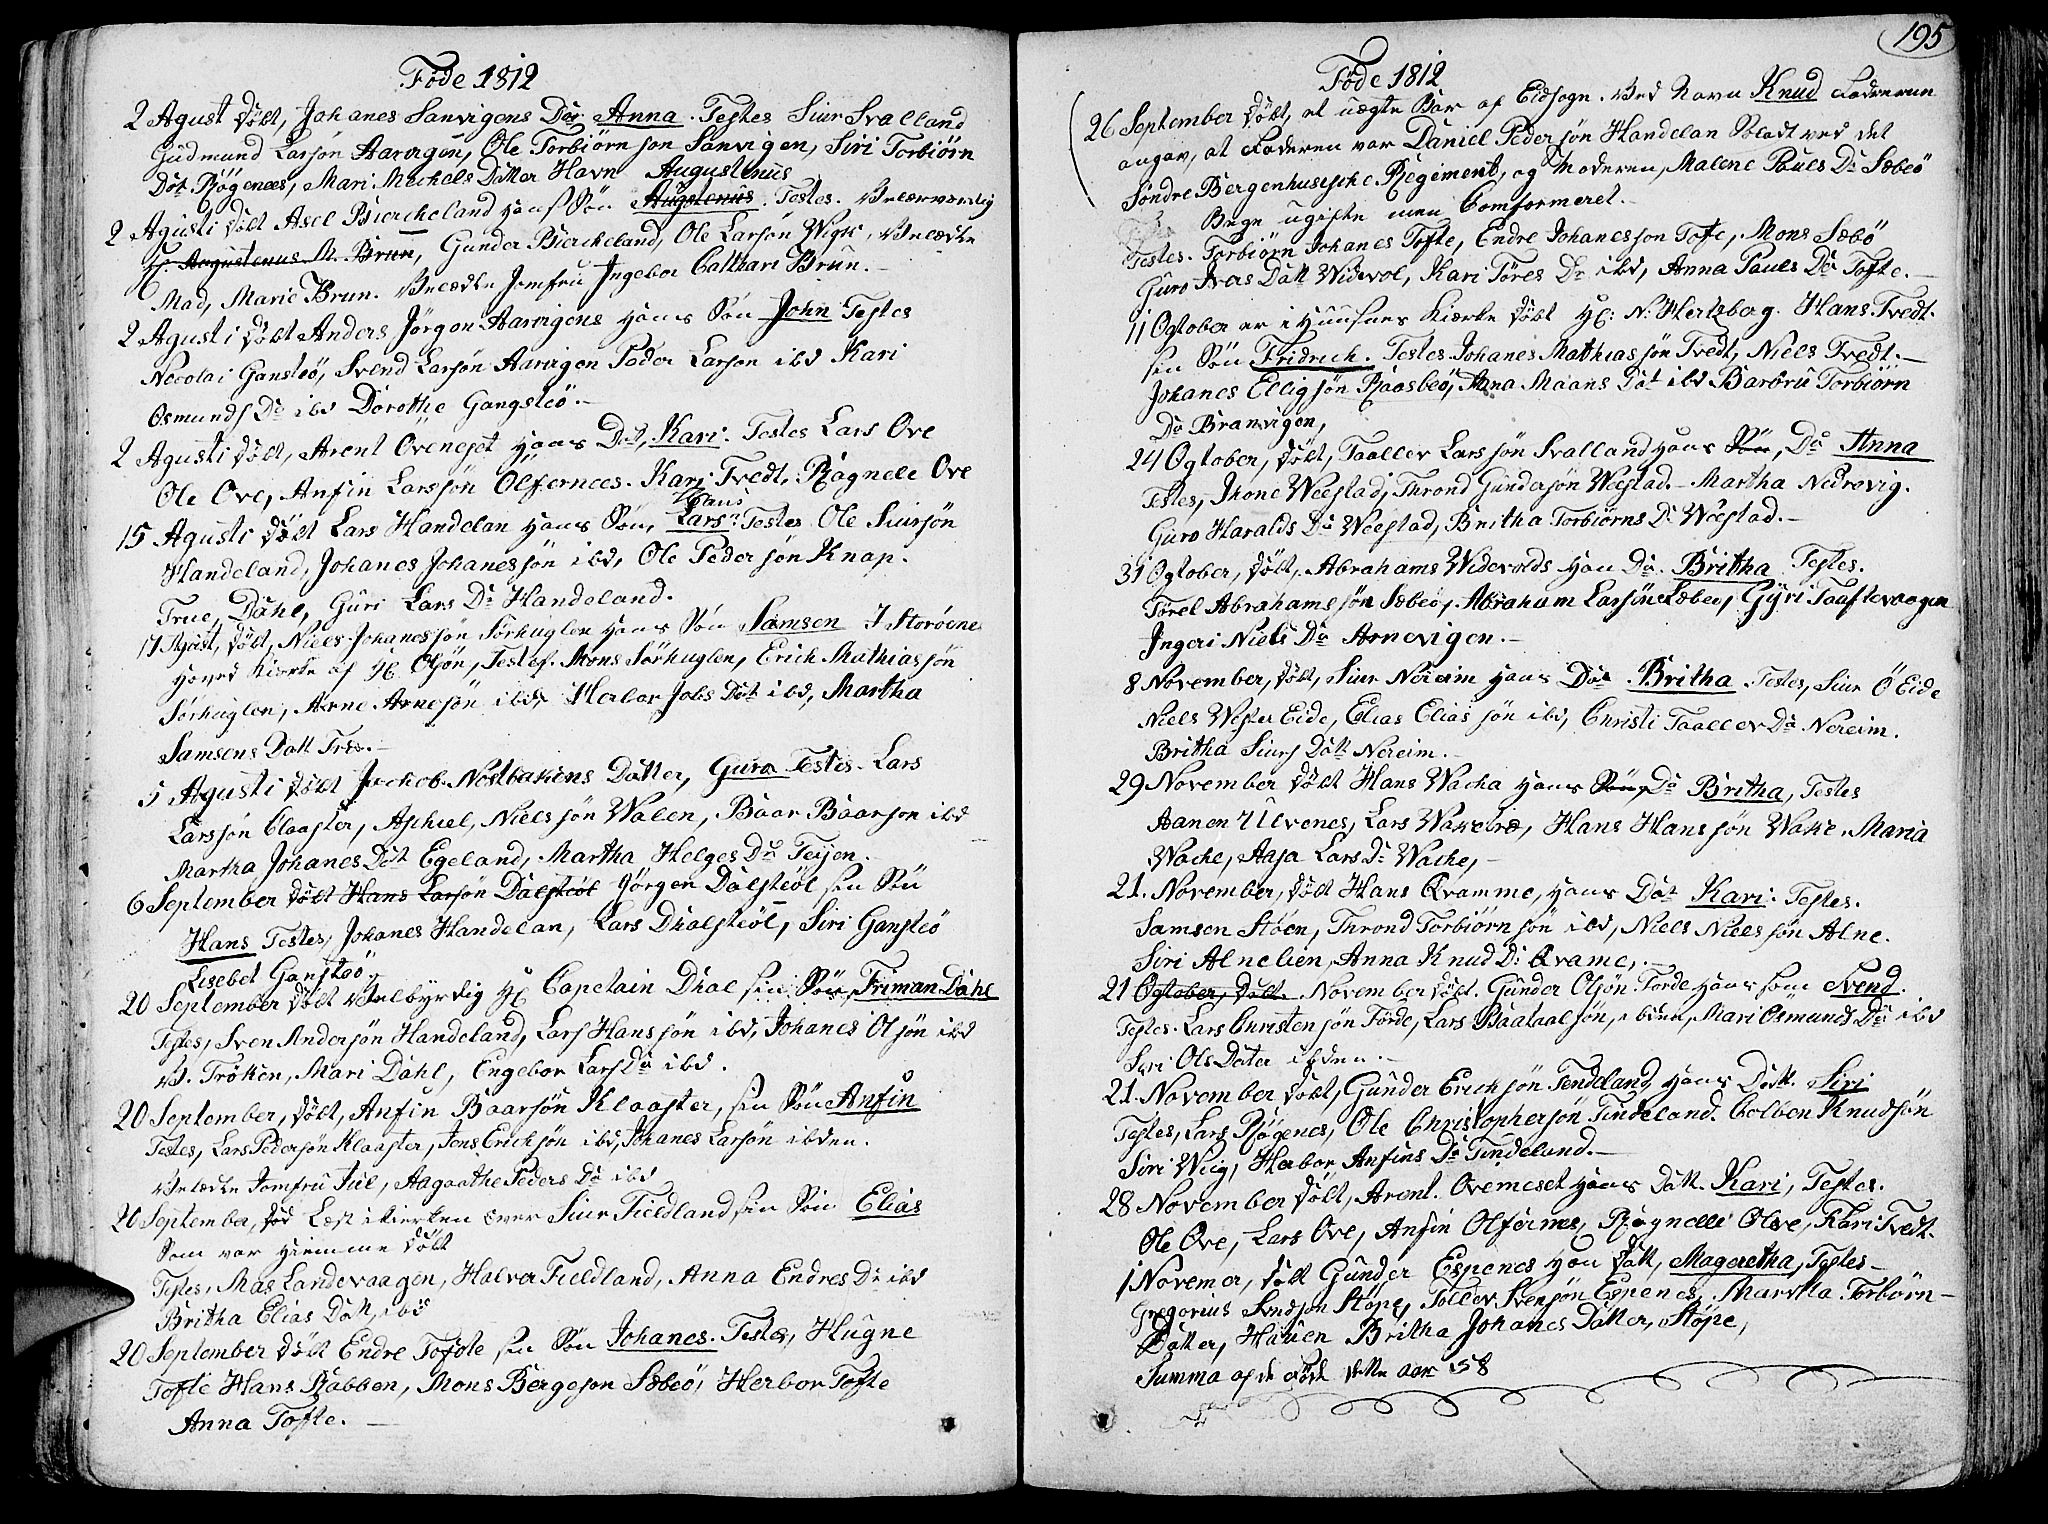 Føde 1812
2 Agust døbt, Johanes Sanvigens Dår Anna. Testes Siur Svalland
Gudmund Larsøn Aarvigen, Ole Torbiørnson Sanvigen, Siri Torbiørn
Dót Røgenæs, Mari Michels Datter Havn Augustenus
2 Agusti døbt Asel Bierckeland hans Søn Augstenus. Testes. Velærværdig
H. Augustenus M. Brun, Gunder Bierckeland, Ole Larsøn Wigh, Velædle
Mad, Marie Brun. Velædle Jomfru Ingebor Cathari Brun.
2 Agusti døbt Anders Jørgen Aarvigens hans Søn John Testes
Necolai Gansteö, Svend Larsøn Aarvigen Peder Larson ibd Kari
Osmunds Da ibd Dorothe Gangsteö.
2 Agusti døbt, Arent Öveneset hans Dot, Kari. Testes Lars Ove
Ole Ove, Anfin Larssøn Olfernees. Kari Tvedt, Ragnele Ove
Hans
15 Agusti døbt Lars Handelan hans Søn, Lars. Testes Ole Siursøn
Handeland, Johanes Johanessøn ibd, Ole Pedersøn Knap.
True, Dahl, Guri Lars Dr Handeland.
17 Agust, døbt, Niels Johanessøn Sørhuglen hans Søn Samsen I Storöene
hoved Kierke af H Olsøn, Testes. Mons Sørhuglen, Erich Mathiassøn
Sørhuglen, Arne Arnesøn ibd, Herbor Jobs Dot ibd, Martha
Samsens Datt Træ.
5 Agusti døbt Jackob Nøstbakens Datter, Guro Testes Lars
Larssøn Claaster, Aschiel, Nielssøn Walen, Baar Baarson ibd
Martha Johanes Dot Egeland, Martha Helges Da Teijen.
6 September døbt Hans Larsøn Dalsteöl Jørgen Dalsteöl sin Søn
Hans Testes, Johanes Handelan, Lars Dhalsteöl, Siri Gansteö
Lisebet Gansteö
20 September døbt Velbyrdig H Capetain Dhal sin Søn, Friman Dahl
Testes, Sven Andersøn Handeland, Lars Hanssøn ibd, Johanes Olsøn ibd
V. Frøken, Mari Dahl, Engebor Lars Da ibd.
20 September, døbt, Anfin Baarsøn Klaaster, sin Søn Anfin
Testes, Lars Pedersøn Klaaster, Jens Erichsøn ibd, Johanes Larsøn ibden.
Velædle Jomfru Jul, Aagaathe Peders Da ibd
20 September, død Læst i kierken over Siur Fieldland sin Søn Elias
som var hiemme døbt
Testes, Mas Landevaagen, Halver Fieldland, Anna Endres Dr ibd
Britha Elias Datt, ibd
20 September døbt Endre Tofste sin Søn Johanes. Testes, Hugne
Tofte Hans Rabben, Mons Bergeson Sæbeö, Herbor Tofte
Anna Tofte.
195
Føde 1812
26 September døbt, et uægte Bar af Eidsogn. Ved Navn Knud Faderenn
angav, at Faderen var Daniel Pedersøn Handelan Soladt ved det
Søndre Bergenhusische Regiment, og Moderen, Malene Pauls Dr Sæbeö
Bege ugifte men Comformeret.
Testes. Torbiørn Johanes Tofte, Endre Johanesson Tofte, Mons Sæbö
Guro Ivers Datt Widevol, Kari Tøres Dr ibd, Anna Pauls Da Tofte.
11 October er i Huusnes Kierke døbt H: N: Hertzberg. Hans Tvedt.
sin Søn Fridrich. Testes Johanes Mathiassøn Tvedt, Niels Tvedt.
Johanes Elligsøn Raasbeö, Anna Maans Dót ibd Barbru Torbiørn
Da Branvigen,
24 Ogtober, døbt, Taallev Larssøn Svalland hans Søn, Da Anna
Testes, Jhone Weestad, Thrond Gundersøn Weestad. Martha Nedrevig.
Guro Haralds Da Weestad, Britha Torbiørns Dr Weestad.
31 Ogtober, døbt, Abrahams Widevolds han Da. Britha Testes.
Tørel Abrahamssøn Sæbeö, Abraham Larsøn Sæbeö, Gyri Taaftevaagen
Ingeri Niels Da Arnevigen.
8 November, døbt, Siur Nereim hans Dot Britha Testes, Siur Ö Eide
Niels Wester Eide, Elias Eliassøn ibd, Christi Taallev Da Nereim.
Britha Siurs Datt Nereim.
29 November døbt Hans Wacha hans Søn, Da Britha, Testes
Aanen Ulvenes, Lars Wakebræ, Hans Hanssøn Wake. Maria
Wache, Aasa Lars Dr Wache,
21. November, døbt Hans Qvamme, hans Dot Kari. Testes.
Samsen Støen, Thrond Torbiørnsøn ibd, Niels Nielssøn Alne.
Siri Alnelien, Anna Knud Dr Qvame,
21 Ogtober, døbt. November døbt. Gunder Olsøn Førde hans søn Svend.
Testes. Lars Christensøn Førde, Lars Baataalsøn, ibden, Mari Osmunds Da ibd
Siri Ols Dater ibden.
21. November døbt, Gunder Erichsøn Tendeland hans Datt. Siri
Testes, Lars Røgenes, Ole Christophersøn Tindeland. Colben Knudsøn
Siri Wiig, Herbor Anfins Da Tindeland.
28 November døbt, Arent. Ovemeset hans Datt. Kari, Testes.
Ole Ove, Lars Ove, Anfin Olfernes, Ragnelli Olve, Kari Tvedt.
1 Novemer, døbt Gunder Espenes han Datt, Mageretha, Testes
Gregorius Svndson Støpe, Tollev Svensøn Espenes, Marrtha Torbørn-
Datter, Hauen Britha Johanes Datter, Støpe,
Summa af de Føde dette aar 158